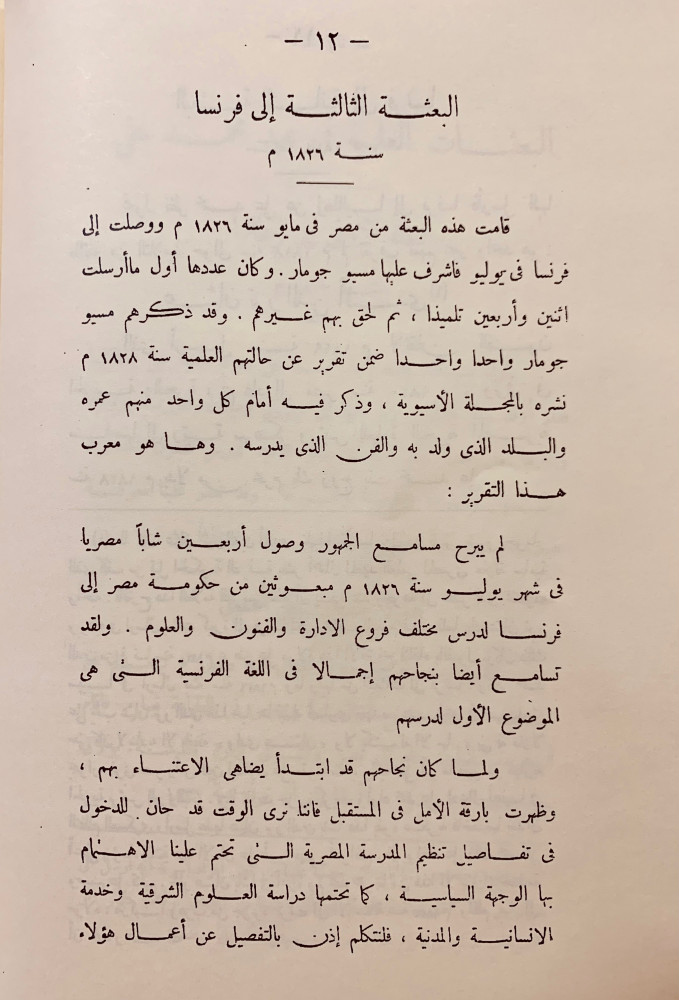 — ١٢ —
البعثة الثالثة إلى فرنسا
سنة ١٨٢٦ م
قامت هذه البعثة من مصر فى مايو سنة ١٨٢٦ م ووصلت إلى
فرنسا فى يوليو فاشرف عليها مسيو جومار . وكان عددها أول ماأرسلت
اثنين وأربعين تلميذا ، ثم لحق بهم غيرهم . وقد ذكرهم مسيو
جومار واحدا واحدا ضمن تقرير عن حالتهم العلمية سنة ١٨٢٨ م
نشره بالمجلة الأسيوية ، وذكر فيه أمام كل واحد منهم عمره
والبلد الذى ولد به والفن الذى يدرسه . وها هو معرب
هذا التقرير :
لم يبرح مسامع الجمهور وصول أربعين شاباً مصريا
فى شهر يوليو سنة ١٨٢٦ م مبعوثين من حكومة مصر إلى
فرنسا لدرس مختلف فروع الادارة والفنون والعلوم . ولقد
تسامع أيضا بنجاحهم إجمالا فى اللغة الفرنسية التى هى
الموضوع الأول لدرسهم
ولما كان نجاحهم قد ابتدأ يضاهى الاعتناء بهم ،
وظهرت بارقة الأمل فى المستقبل فاننا نرى الوقت قد حان للدخول
فى تفاصيل تنظيم المدرسة المصرية التى تحتم علينا الاهتمام
بها الوجهة السياسية ، كما تحتمها دراسة العلوم الشرقية وخدمة
الانسانية والمدنية ، فلنتكلم إذن بالتفصيل عن أعمال هؤلاء